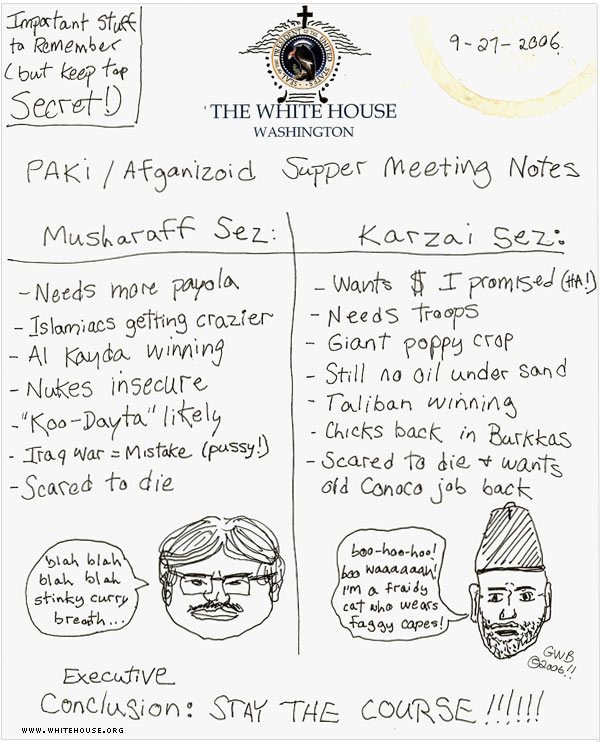 Important Stuff
to Remember
(but keep top
Secret!)
SEAL OF THE PRESIDENT OF THE UNITED STATES
9-27-2006.
THE WHITE HOUSE
WASHINGTON
PAKi / Afganizoid Supper Meeting Notes
Musharaff Sez:
- Needs more payola
- Islamiacs getting crazier
- Al Kayda winning
- Nukes insecure
- "Koo-Dayta" likely
- Iraq War = Mistake (pussy!)
- Scared to die
blah blah
blah blah
stinky curry
breath...
Karzai Sez:
- Wants $ I promised (HA!)
- Needs troops
- Giant poppy crop
- Still no oil under sand
- Taliban winning
- Chicks back in Burkkas
- Scared to die + wants
old Conoco job back
boo-hoo-hoo!
boo waaaaaah!
I'm a fraidy
cat who wears
faggy capes!
GWB
©2006!!
Executive
Conclusion: STAY THE COURSE!!!!!!
WWW.WHITEHOUSE.ORG